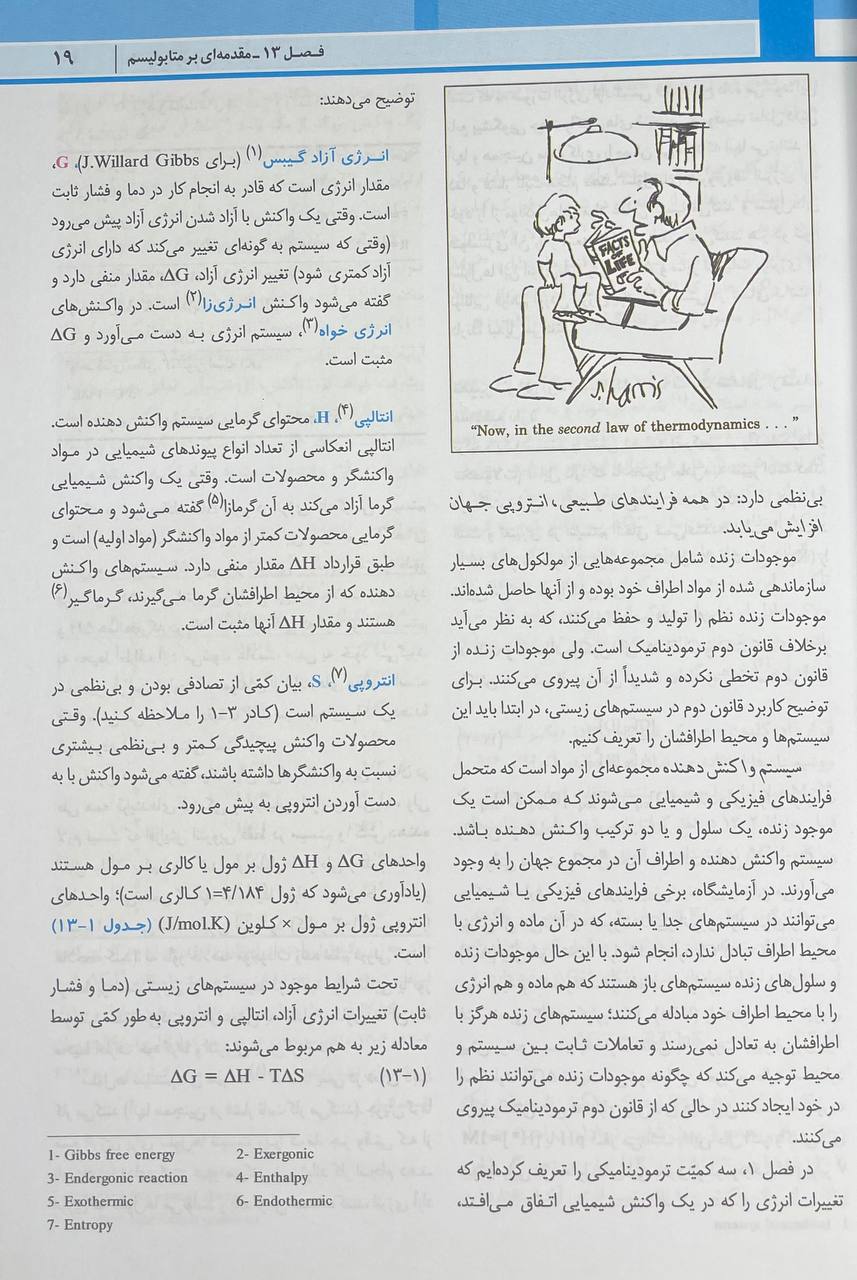 فصل ۱۳ - مقدمه‌ای بر متابولیسم
۱۹
FACTS
OF
LIFE
S. Harris
“Now, in the second law of thermodynamics . . . ”
بی‌نظمی دارد: در همه فرایندهای طبیعی، انتروپی جهان
افزایش می‌یابد.
موجودات زنده شامل مجموعه‌هایی از مولکول‌های بسیار
سازماندهی شده از مواد اطراف خود بوده و از آنها حاصل شده‌اند.
موجودات زنده نظم را تولید و حفظ می‌کنند، که به نظر می‌آید
برخلاف قانون دوم ترمودینامیک است. ولی موجودات زنده از
قانون دوم تخطی نکرده و شدیداً از آن پیروی می‌کنند. برای
توضیح کاربرد قانون دوم در سیستم‌های زیستی، در ابتدا باید این
سیستم‌ها و محیط اطرافشان را تعریف کنیم.
سیستم واکنش دهنده مجموعه‌ای از مواد است که متحمل
فرایندهای فیزیکی و شیمیایی می‌شوند که ممکن است یک
موجود زنده، یک سلول و یا دو ترکیب واکنش دهنده باشد.
سیستم واکنش دهنده و اطراف آن در مجموع جهان را به وجود
می‌آورند. در آزمایشگاه، برخی فرایندهای فیزیکی یا شیمیایی
می‌توانند در سیستم‌های جدا یا بسته، که در آن ماده و انرژی با
محیط اطراف تبادل ندارد، انجام شود. با این حال موجودات زنده
و سلول‌های زنده سیستم‌های باز هستند که هم ماده و هم انرژی
را با محیط اطراف خود مبادله می‌کنند؛ سیستم‌های زنده هرگز با
اطرافشان به تعادل نمی‌رسند و تعاملات ثابت بین سیستم و
محیط توجیه می‌کند که چگونه موجودات زنده می‌توانند نظم را
در خود ایجاد کنند در حالی که از قانون دوم ترمودینامیک پیروی
می‌کنند.
در فصل ۱، سه کمیّت ترمودینامیکی را تعریف کرده‌ایم که
تغییرات انرژی را که در یک واکنش شیمیایی اتفاق می‌افتد،
توضیح می‌دهند:
انرژی آزاد گیبس(۱) (برای J.Willard Gibbs)، G،
مقدار انرژی است که قادر به انجام کار در دما و فشار ثابت
است. وقتی یک واکنش با آزاد شدن انرژی آزاد پیش می‌رود
(وقتی که سیستم به گونه‌ای تغییر می‌کند که دارای انرژی
آزاد کمتری شود) تغییر انرژی آزاد، ΔG، مقدار منفی دارد و
گفته می‌شود واکنش انرژی‌زا(۲) است. در واکنش‌های
انرژی خواه(۳)، سیستم انرژی به دست می‌آورد و ΔG
مثبت است.
انتالپی(۴)، H، محتوای گرمایی سیستم واکنش دهنده است.
انتالپی انعکاسی از تعداد انواع پیوندهای شیمیایی در مواد
واکنشگر و محصولات است. وقتی یک واکنش شیمیایی
گرما آزاد می‌کند به آن گرمازا(۵) گفته می‌شود و محتوای
گرمایی محصولات کمتر از مواد واکنشگر (مواد اولیه) است و
طبق قرارداد ΔH مقدار منفی دارد. سیستم‌های واکنش
دهنده که از محیط اطرافشان گرما می‌گیرند، گرماگیر(۶)
هستند و مقدار ΔH آنها مثبت است.
انتروپی(۷)، S، بیان کمّی از تصادفی بودن و بی‌نظمی در
یک سیستم است (کادر ۳-۱ را ملاحظه کنید). وقتی
محصولات واکنش پیچیدگی کمتر و بی‌نظمی بیشتری
نسبت به واکنشگرها داشته باشند، گفته می‌شود واکنش با به
دست آوردن انتروپی به پیش می‌رود.
واحدهای ΔG و ΔH ژول بر مول یا کالری بر مول هستند
(یادآوری می‌شود که ژول ۴/۱۸۴=۱ کالری است)؛ واحدهای
انتروپی ژول بر مول × کلوین (J/mol.K) (جدول ۱-۱۳)
است.
تحت شرایط موجود در سیستم‌های زیستی (دما و فشار
ثابت) تغییرات انرژی آزاد، انتالپی و انتروپی به طور کمّی توسط
معادله زیر به هم مربوط می‌شوند:
(۱۳-۱) ΔG = ΔH - TΔS
1- Gibbs free energy 2- Exergonic
3- Endergonic reaction 4- Enthalpy
5- Exothermic 6- Endothermic
7- Entropy